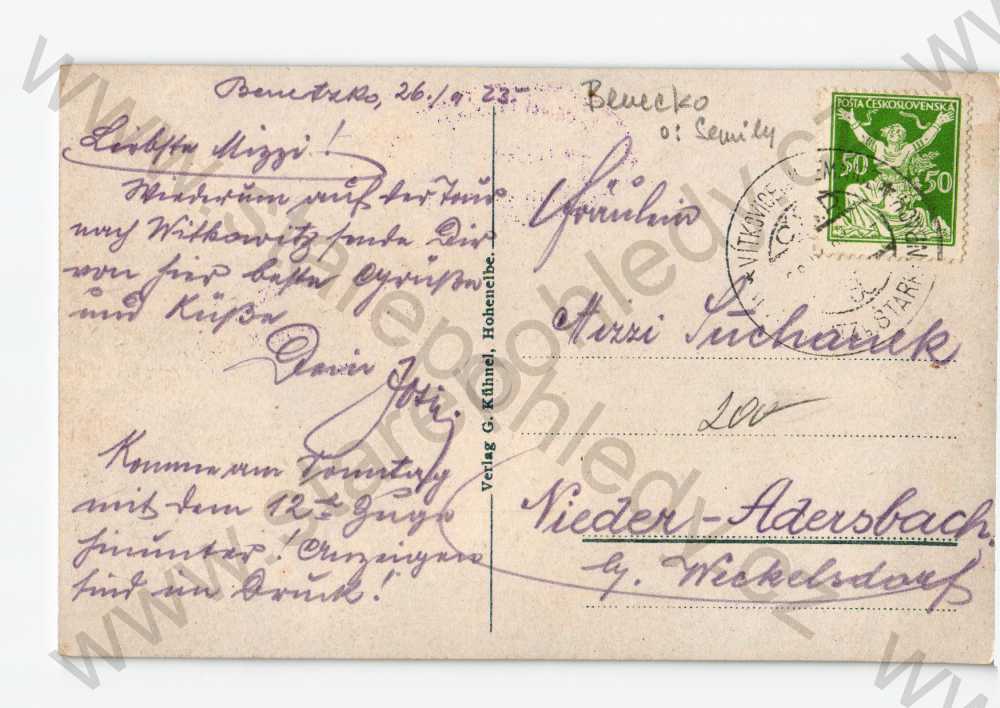 Benetzko, 26./9. 23.
Liebste Mizzi!
Wiederum auf der Tour
nach Witkowitz sende Dir
von hier beste Grüße
und Küße
Dein
Komme am Sonntag
mit dem 12 Zuge
hinunter! Anzeigen
sind im Druck!
Verlag G. Kühnel, Hohenelbe.
Benecko
o: Semily
POŠTA ČESKOSLOVENSKÁ
50 50
VÍTKOVICE
STARK
Fräulein
Mizzi Suchanek
200
Nieder-Adersbach.
b/. Weckelsdorf
www.starepohledy.cz